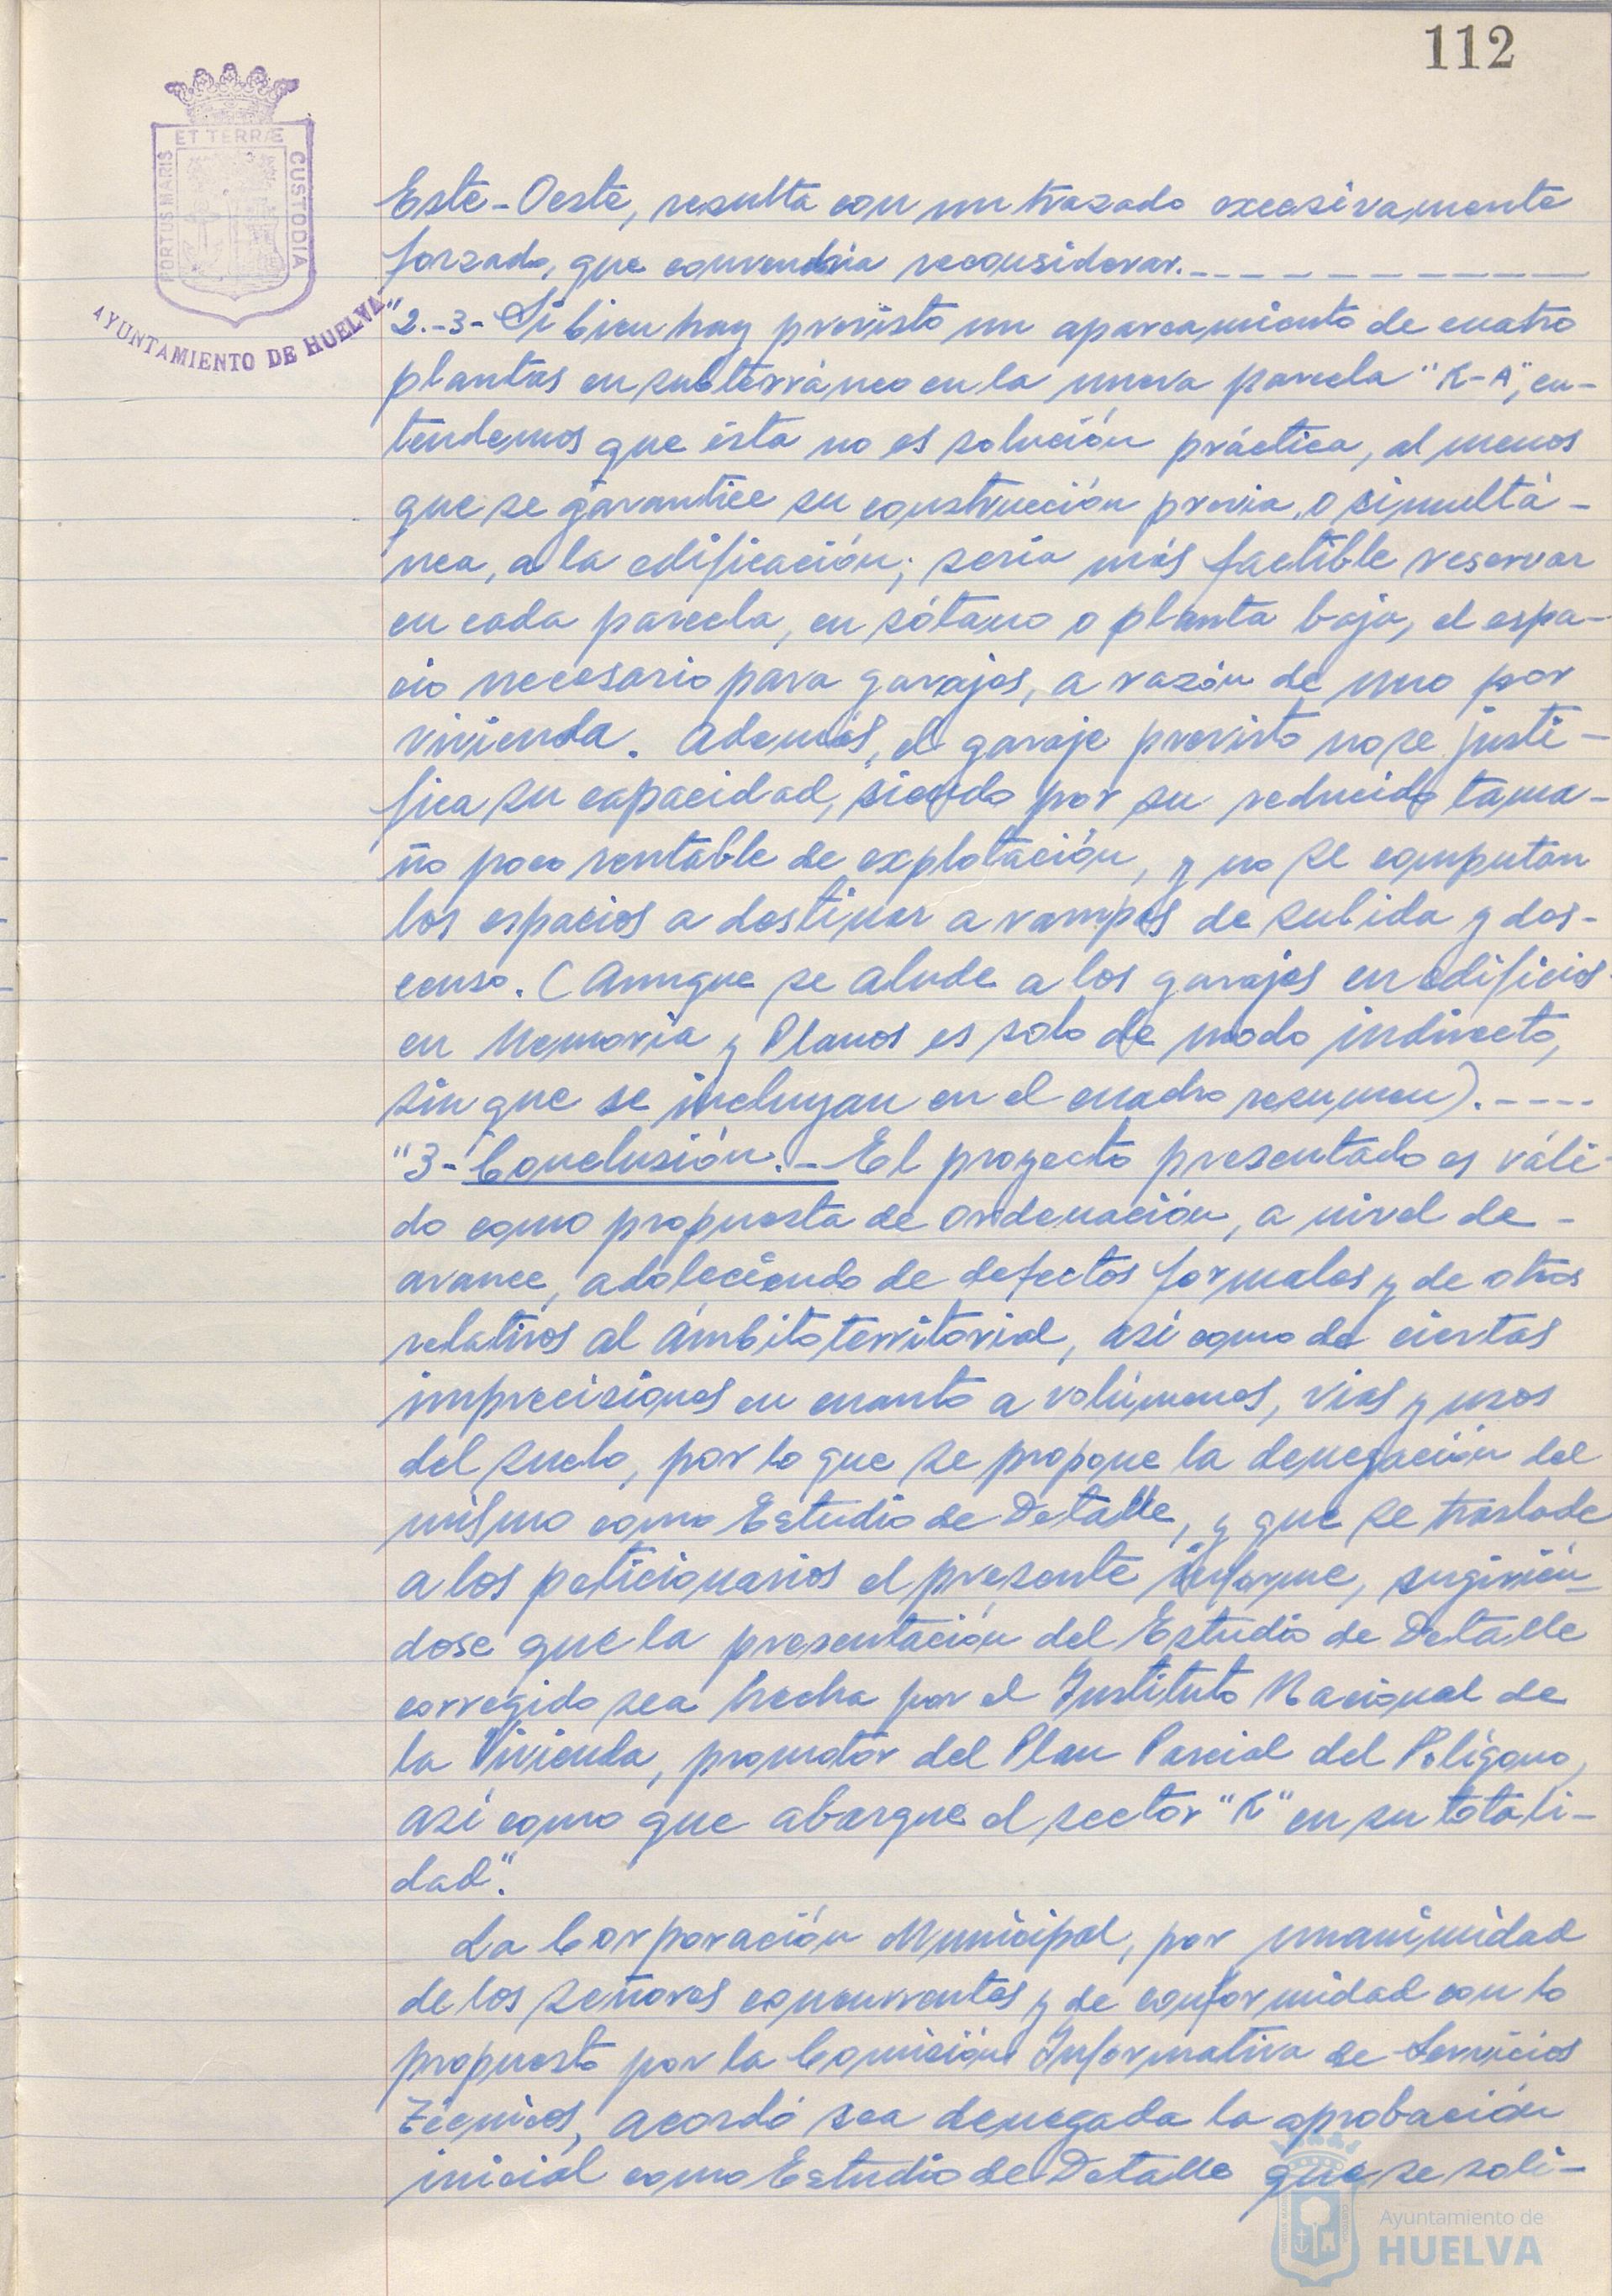 112
ET TERRÆ
PORTUS MARIS
CUSTODIA
AYUNTAMIENTO DE HUELVA
Este-Oeste, resulta con un trazado excesivamente
forzado, que convendria reconsiderar.-----------
"2.-3- Si bien hay previsto un aparcamiento de cuatro
plantas en subterráneo en la nueva parcela "K-A", en-
tendemos que ésta no es solución práctica, al menos
que se garantice su construcción previa, o simultá-
nea, a la edificación; seria más factible reservar
en cada parcela, en sótano o planta baja, el espa-
cio necesario para garajes, a razón de uno por
vivienda. Además, el garaje previsto no se justi-
fica su capacidad, siendo por su reducido tama-
ño poco rentable de explotación, y no se computan
los espacios a destinar a rampas de subida y des-
censo. (Aunque se alude a los garajes en edificios
en Memoria y Planos es solo de modo indirecto,
sin que se incluyan en el cuadro resumen).----
"3- Conclusión.- El proyecto presentado es váli-
do como propuesta de ordenación, a nivel de -
avance, adoleciendo de defectos formales y de otros
relativos al ámbito territorial, asi como de ciertas
imprecisiones en cuanto a volúmenes, vias y usos
del suelo, por lo que se propone la denegación del
mismo como Estudio de Detalle, y que se traslade
a los peticionarios el presente informe, sugirién-
dose que la presentación del Estudio de Detalle
corregido sea hecha por el Instituto Nacional de
la Vivienda, promotor del Plan Parcial del Poligono,
asi como que abarque el sector "K" en su totali-
dad".
La Corporación Municipal, por unanimidad
de los señores concurrentes y de conformidad con lo
propuesto por la Comisión Informativa de Servicios
Técnicos, acordó sea denegada la aprobación
inicial como Estudio de Detalle que se soli-
Ayuntamiento de
HUELVA